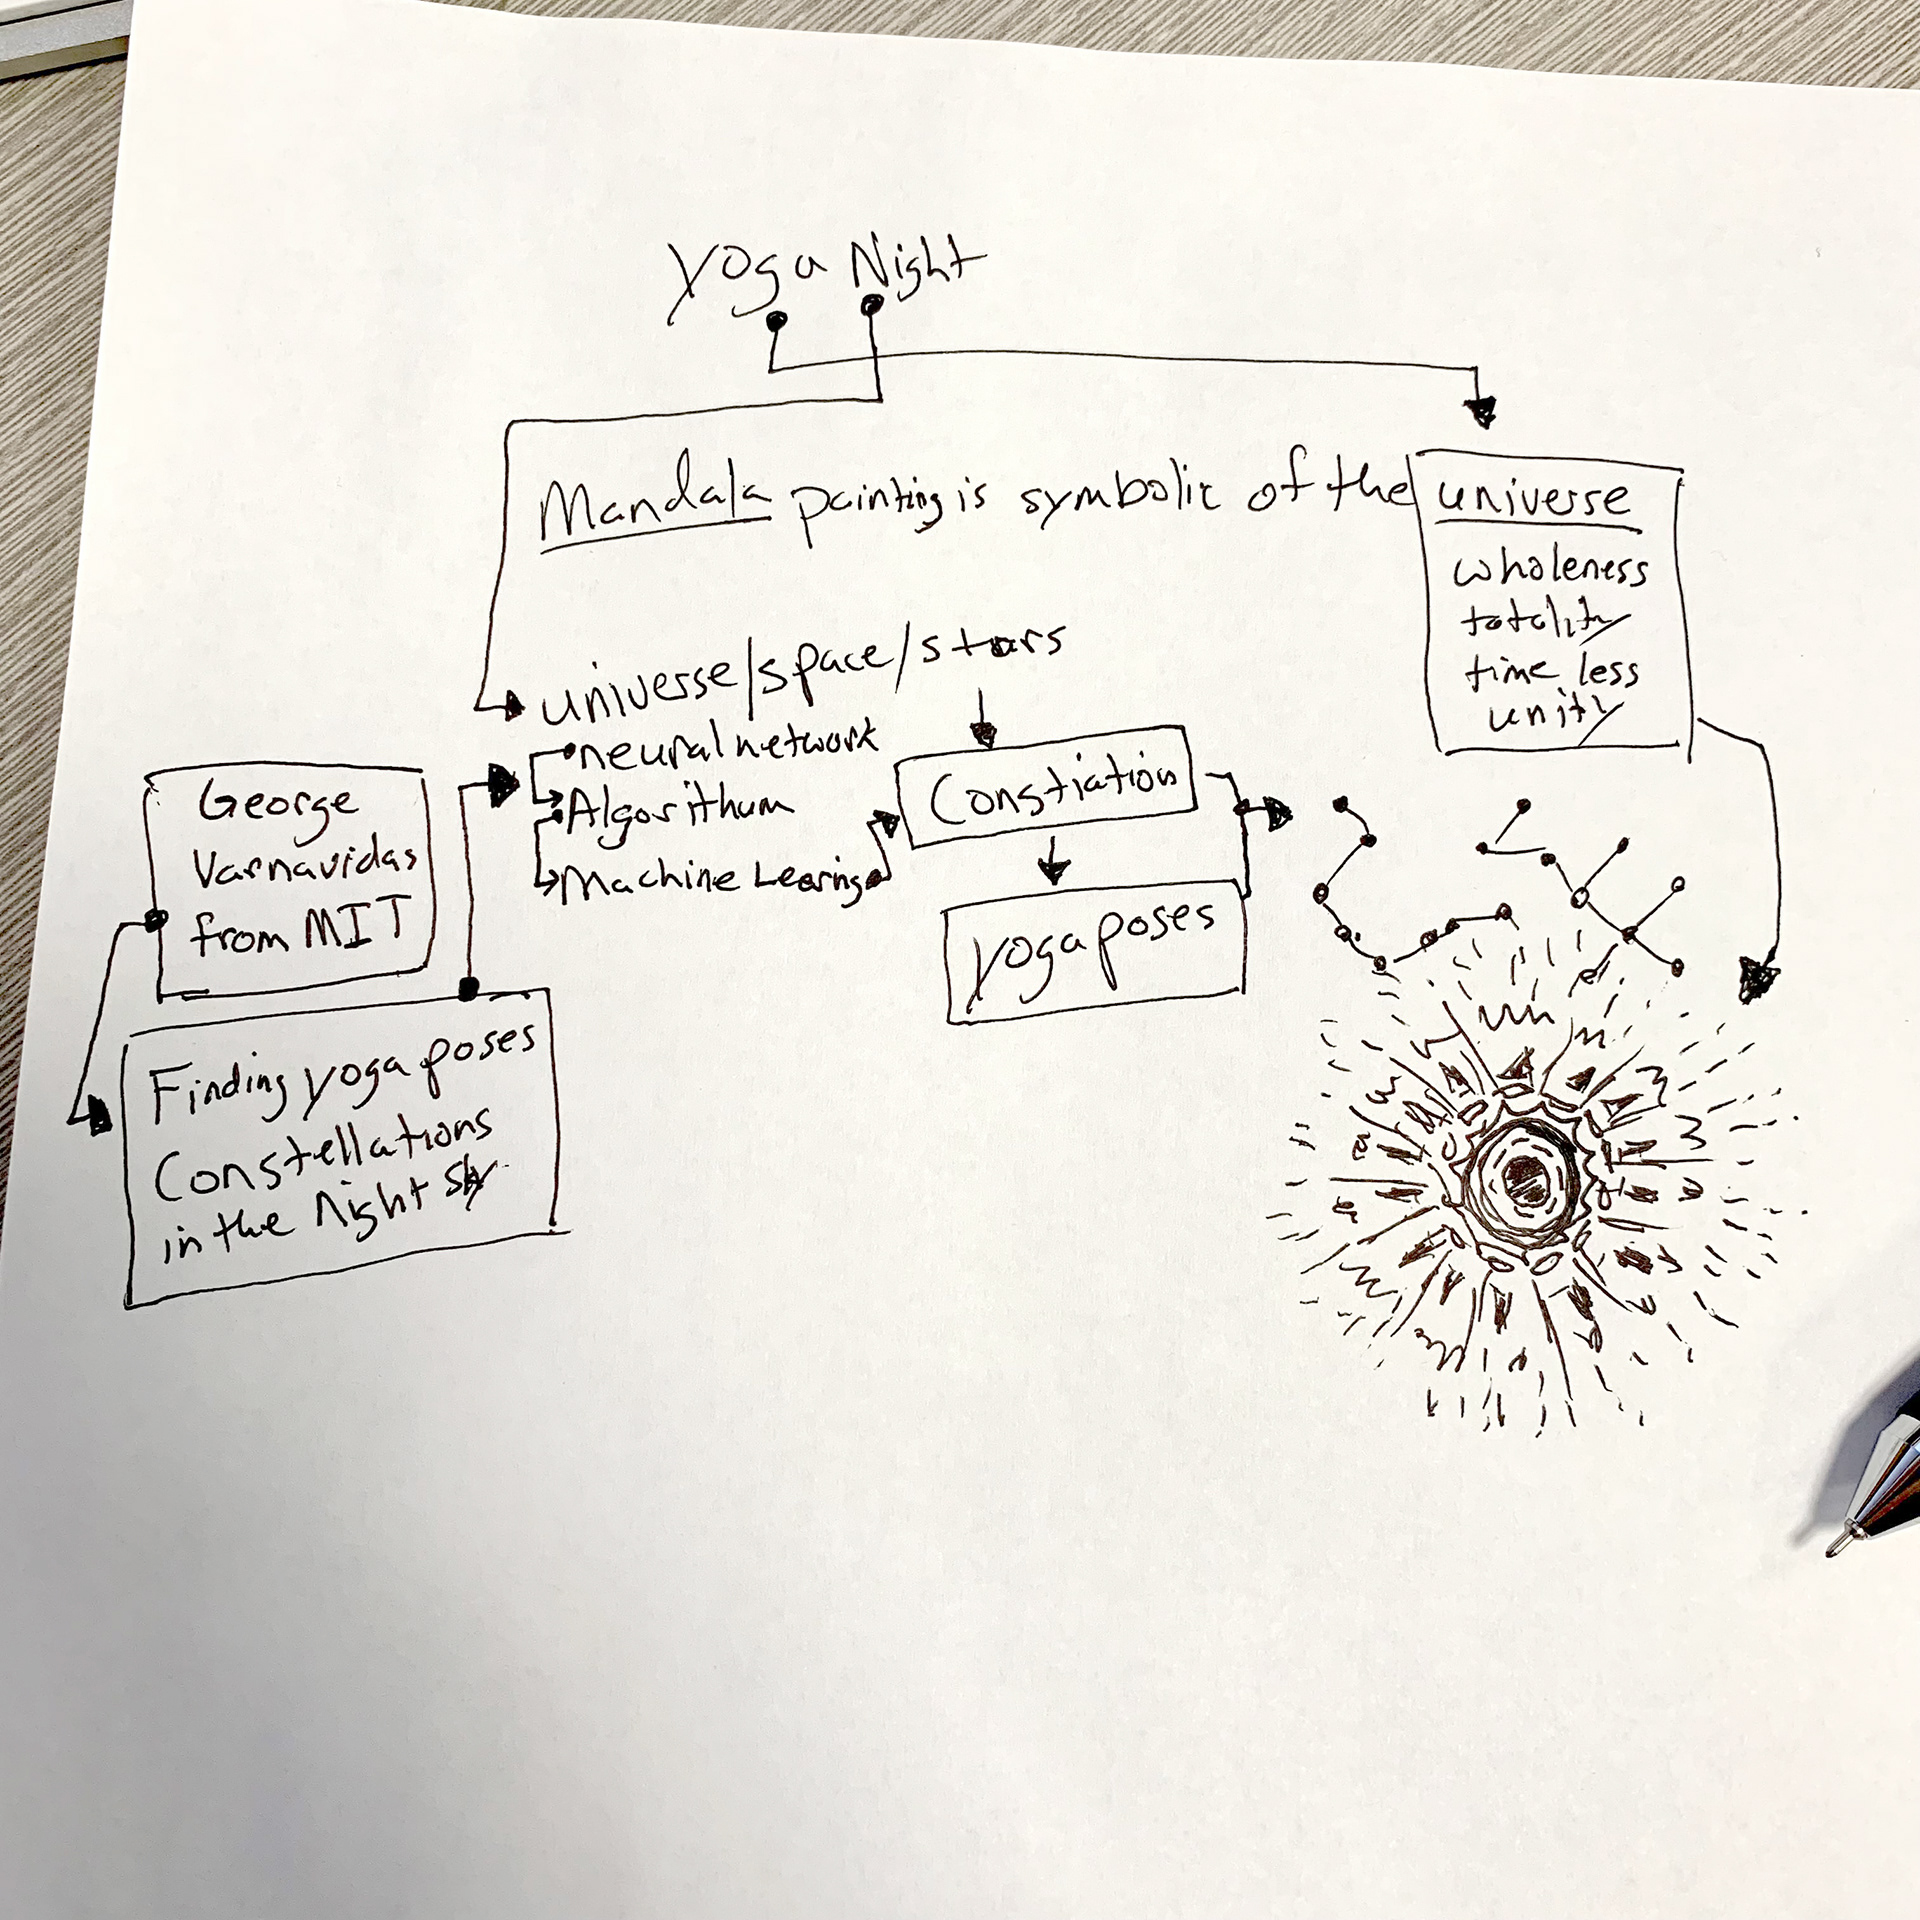 Yoga Night
Mandala painting is symbolic of the universe
wholeness
totality
time less
unity
universe/space/stars
neural network
Algorithum
Machine Learing
Constiation
yoga poses
George
Varnavidas
from MIT
Finding yoga poses
Constellations
in the Night sky